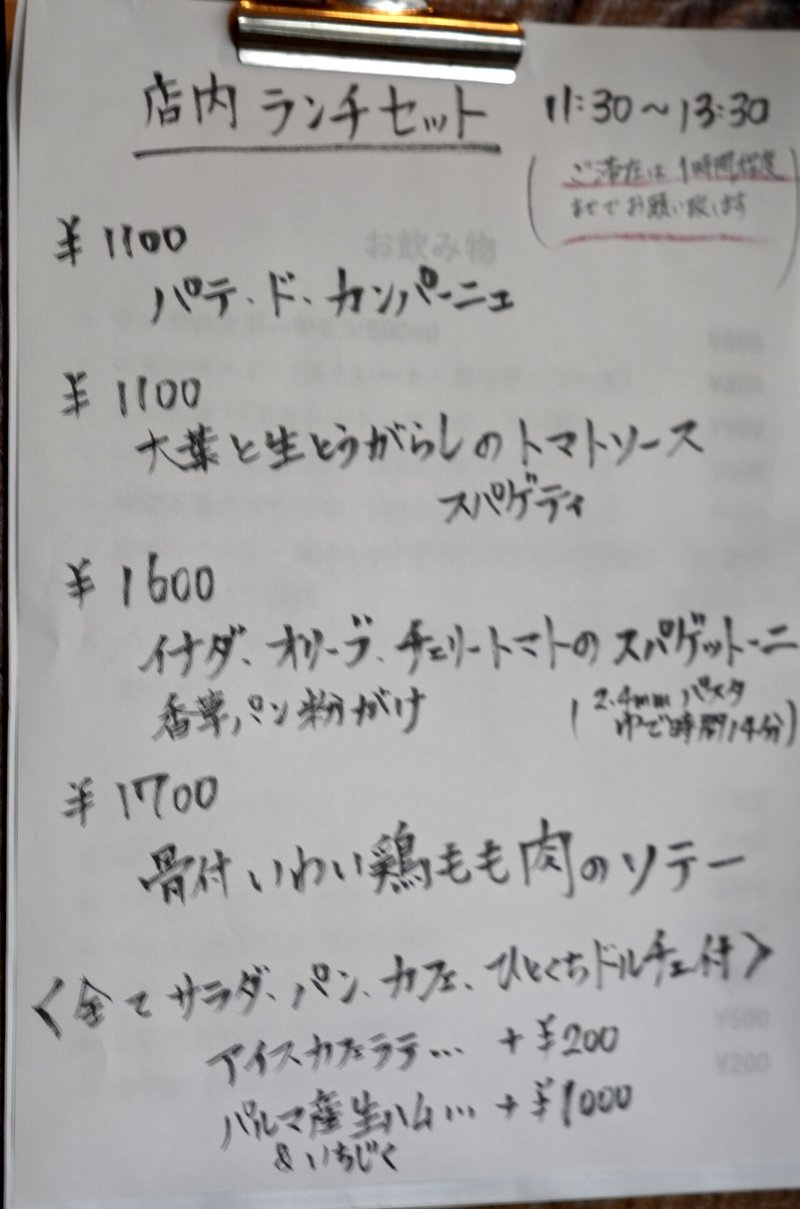 店内 ランチセット 11:30～13:30
(ご滞在は1時間程度
まででお願い致します)
¥1100
パテ・ド・カンパーニュ
¥1100
大葉と生とうがらしのトマトソース
スパゲティ
¥1600
イナダ、オリーブ、チェリートマトのスパゲットーニ
香草パン粉がけ (2.4mmパスタ
ゆで時間14分)
¥1700
骨付いわい鶏もも肉のソテー
<全てサラダ、パン、カフェ、ひとくちドルチェ付>
アイスカフェラテ… +¥200
パルマ産生ハム… +¥1000
&いちじく
お飲み物
500ml
¥500
¥200